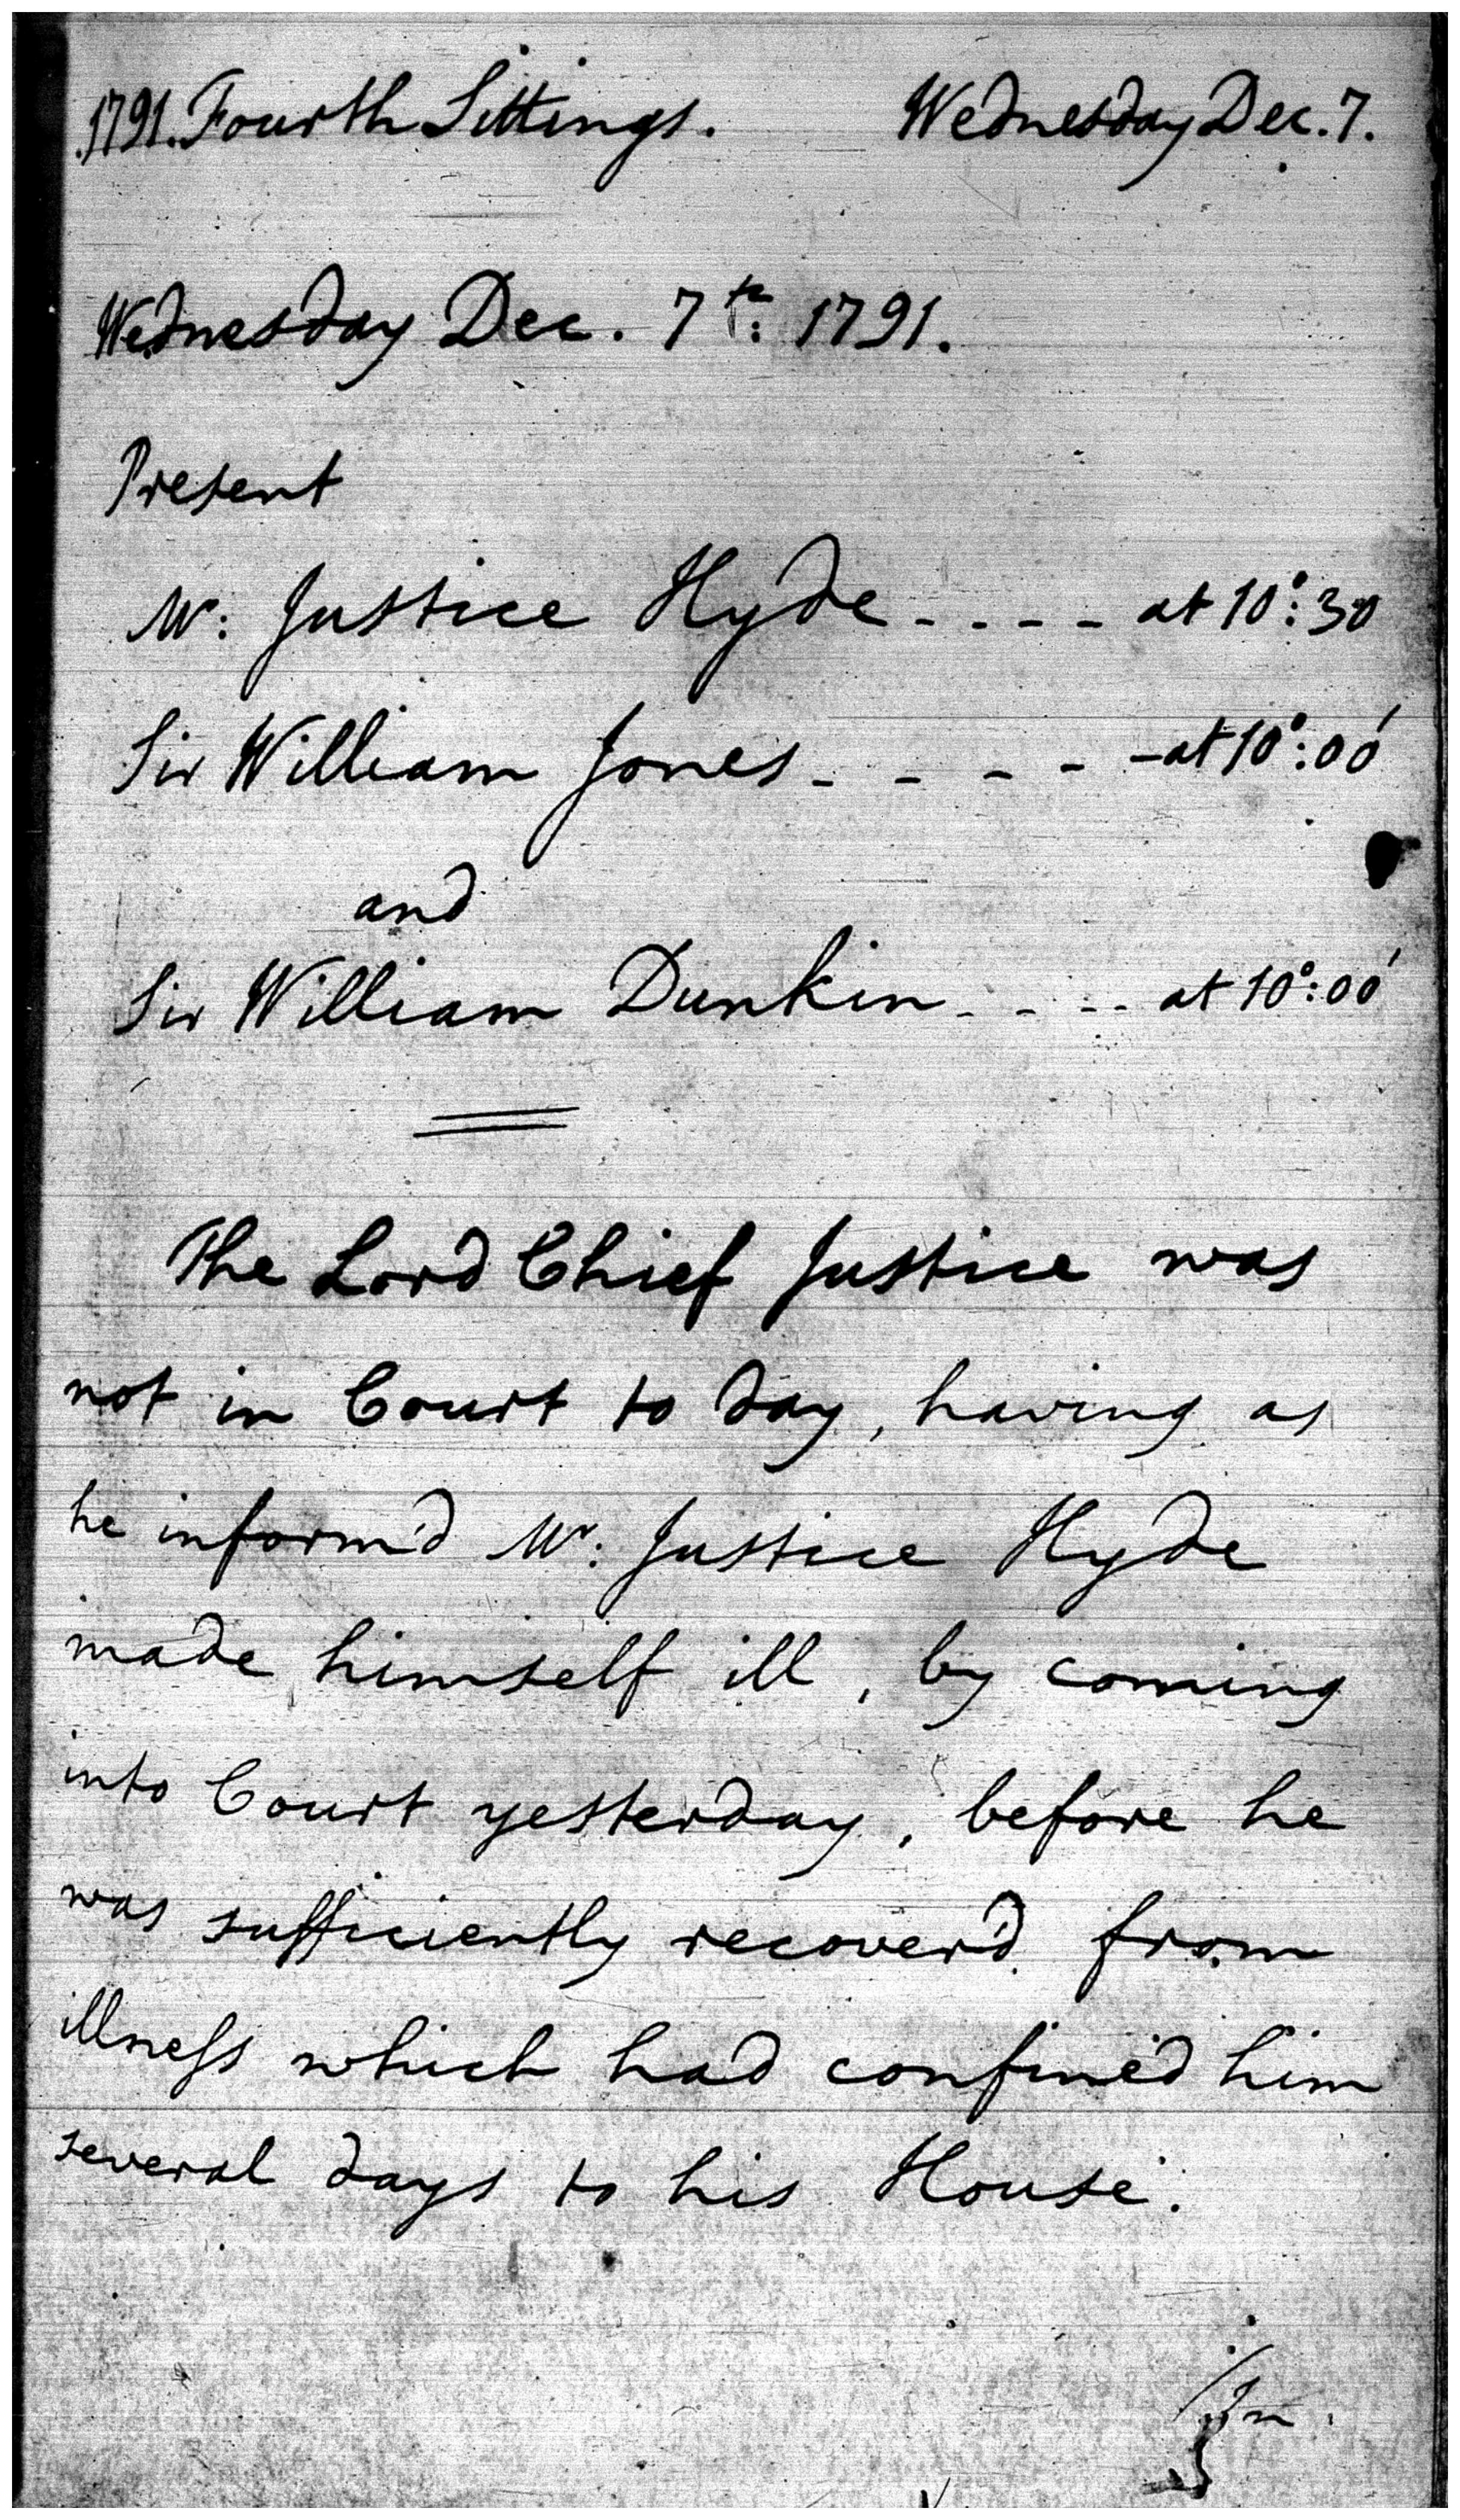 1791. Fourth Sittings. Wednesday Dec. 7.
Wednesday Dec. 7th: 1791.
Present
Mr: Justice Hyde - - - - at 10°: 30
Sir William Jones - - - - - at 10°: 00'
and
Sir William Dunkin - - - - at 10°: 00'
The Lord Chief Justice was
not in Court to day, having as
he inform'd Mr: Justice Hyde
made himself ill, by coming
into Court yesterday, before he
was sufficiently recover'd from
illneſs which had confin'd him
several days to his House.